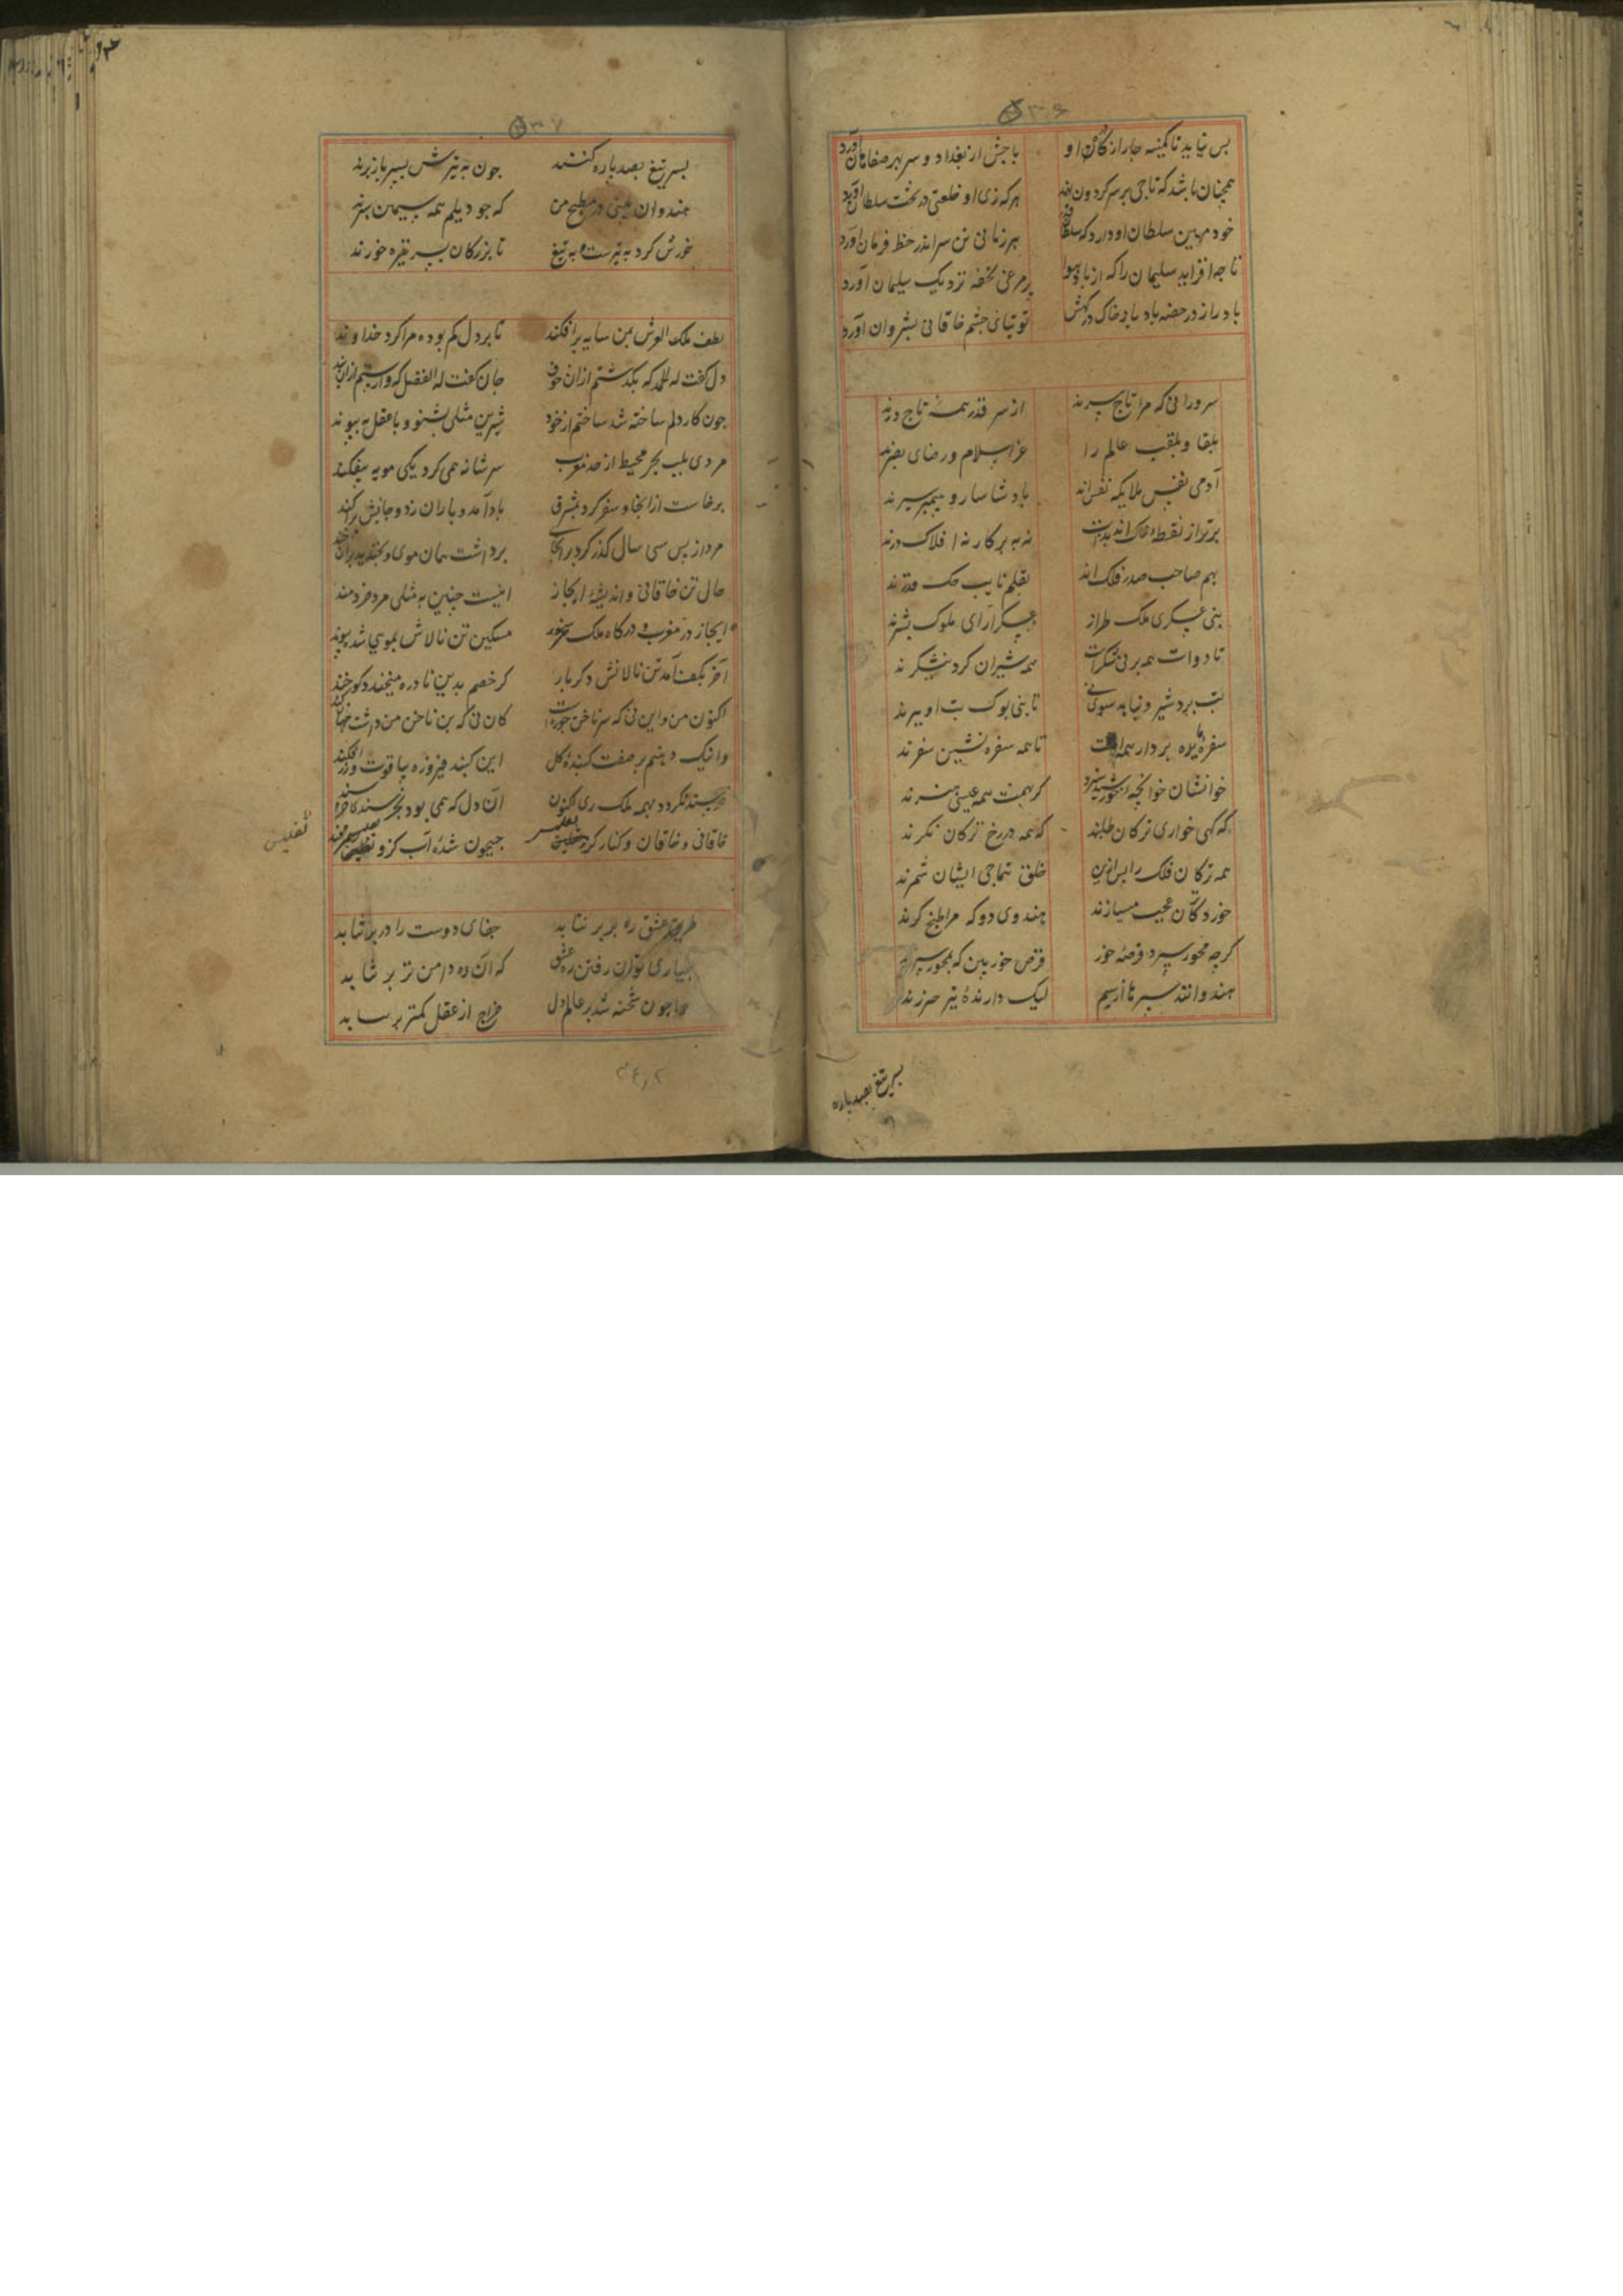 ۳۰۶
بس نیاید تا کمینه جار از کان او
باجش از بغداد و سر بهر صفاهان آورد
همچنان باشد که تاجی بر سر کردون نهد
هرکه زی او خلعتی در تخت سلطان آورد
خود مهین سلطان او دارد که سلطان
هر زمانی تن سر اندر خط فرمان آورد
تا چه افزاید سلیمان را که از باد هوا
پر مرغی تحفه نزدیک سلیمان آورد
باد را ز در حضه باد باد خاک درکهش
توتیای چشم خاقانی بشروان آورد
سرورانی که مرا تاج سرند
از سر قدر همه تاج درند
بلقا و بلقب عالم را
عز اسلام و رضای بصرند
آدمی نفس ملایکه نفس اند
بادشا سار و پیمبر سیرند
برتر از نقطه خاک اند بذات
نه به برکار نه افلاک درند
بهم صاحب صدر فلک اند
بقلم نایب حکم قدرند
بنی عسکری ملک طراز
عسکر آرای ملوک بشرند
تا دوات همه بر نی شکرست
همه شیران کرد نیشکرند
تب برد شیر و نیابه سوی نی
تا بنی بوک تب او ببرند
سفره مایده بردار همه است
تا همه سفره نشین سفرند
خوانشان خوانجه خورشید سزد
کر بهمت همه عیسی هنرند
که کهی خواری ترکان طلبند
که همه در رخ ترکان نکرند
همه ترکان فلک را پس ازین
خلق تتماجی ایشان شمرند
خوردکان عجب میسازند
هندوی دو که مرا طبخ کرند
کرچه محور سپرد قرصه خور
قرص خور بین که بمحور سپرند
هندوانند سپر ما از سیم
لیک دارنده تیر حرزند
بسر تیغ بصد باره
۳۰۷
بسر تیغ بصد باره کنند
جون به تیرش بسپر باز برند
هندوان بینی در مطبخ من
که جو دیلم همه سیمین سپرند
خورش کرد به تیرست و به تیغ
تا بزرکان بسر نیزه خورند
لطف ملک العرش من سایه بر افکند
تا بر دل کم بوده مرا کرد خداوند
دل کفت له الحمد که بکذشتم از آن خوف
جان کفت له الفضل که وارستم از آن بند
جون کار دلم ساخته شد ساختم از خود
شیرین مثلی بشنو و با عقل به پیوند
مردی بلب بحر محیط از حد مغرب
سر شانه همی کرد یکی مویه بیفکند
برخاست از انجا و سفر کرد بمشرق
باد آمد و باران زد و جانیش براکند
مرد از پس سی سال کذر کرد بر انجا
برداشت همان موی و بخندید بران خند
حال تن خاقانی و اندیشه ابخاز
اینست جنین به مثلی مرد خردمند
ابخاز در مغرب و درکاه ملک بحر
مسکین تن نالاش بموی شده پیوند
آخر بکف آمد تن نالانش دکر بار
کر خصم بدین نادره میخندد کو خند
اکنون من و این نی که سر ناخن حورست
کان نی که بن ناخن من داشت جهان کند
وانیک دهنم بر صفت کنبده کل
این کنبد فیروزه بیاقوت و زر افکند
خرسند نکردد بهمه ملک ری اکنون
آن دل که همی بود بخرسندی خرسند
خاقانی و خاقان و کنار کر و تفلیس
جیحون شده آب کر و تفلیس سمرقند
تفلیس
طریق عشق ره بر بر نتابد
جفای دوست را در بر نتابد
بعیاری توان رفتن ره عشق
که آن ره دامن تر بر نتابد
هوا جون شحنه شد بر عالم دل
خراج از عقل کمتر بر نتابد